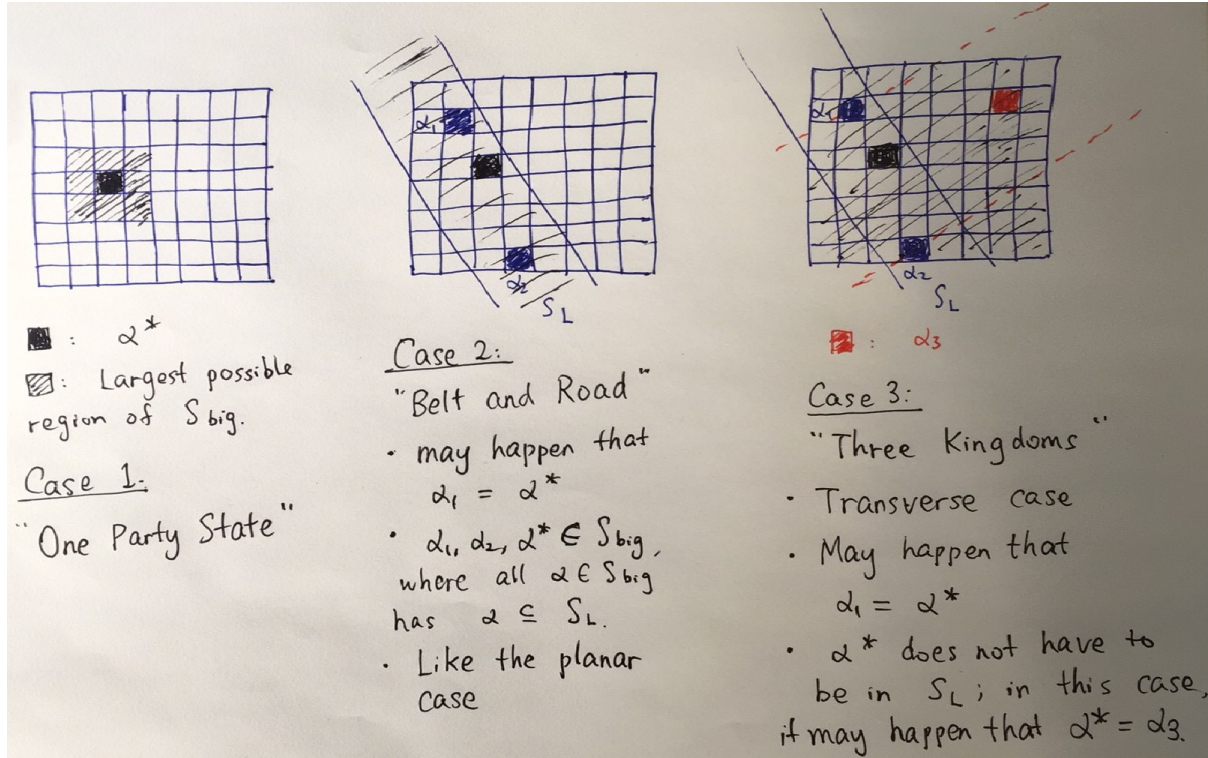 α₁
α₂
S_L
α₁
α₂
S_L
: α*
: Largest possible
region of S big.
Case 1.
"One Party State"
Case 2:
"Belt and Road"
· may happen that
α₁ = α*
· α₁, α₂, α* ∈ S big,
where all α ∈ S big
has α ⊆ S_L.
· Like the planar
case
: α₃
Case 3:
"Three Kingdoms"
· Transverse case
· May happen that
α₁ = α*
· α* does not have to
be in S_L; in this case,
it may happen that α* = α₃.